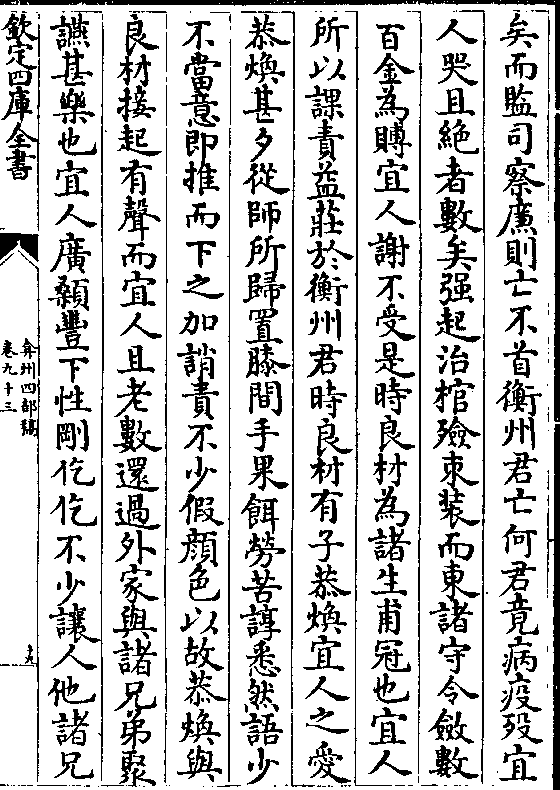 矣而監司察廉則亡不首衡州君亡何君竟病疫殁宜
人哭且絶者數矣强起治棺殮束装而東諸守令斂數
百金為賻宜人謝不受是時良材為諸生甫冠也宜人
所以課責益莊於衡州君時良材有子恭煥宜人之愛
恭煥甚夕從師所歸置膝間手果餌勞苦諄悉然語少
不當意即推而下之加誚責不少假顔色以故恭煥與
良材接起有聲而宜人且老數還過外家與諸兄弟聚
讌甚樂也宜人廣顙豐下性剛仡仡不少讓人他諸兄
欽定四庫全書
弇州四部稿
卷九十三
十九